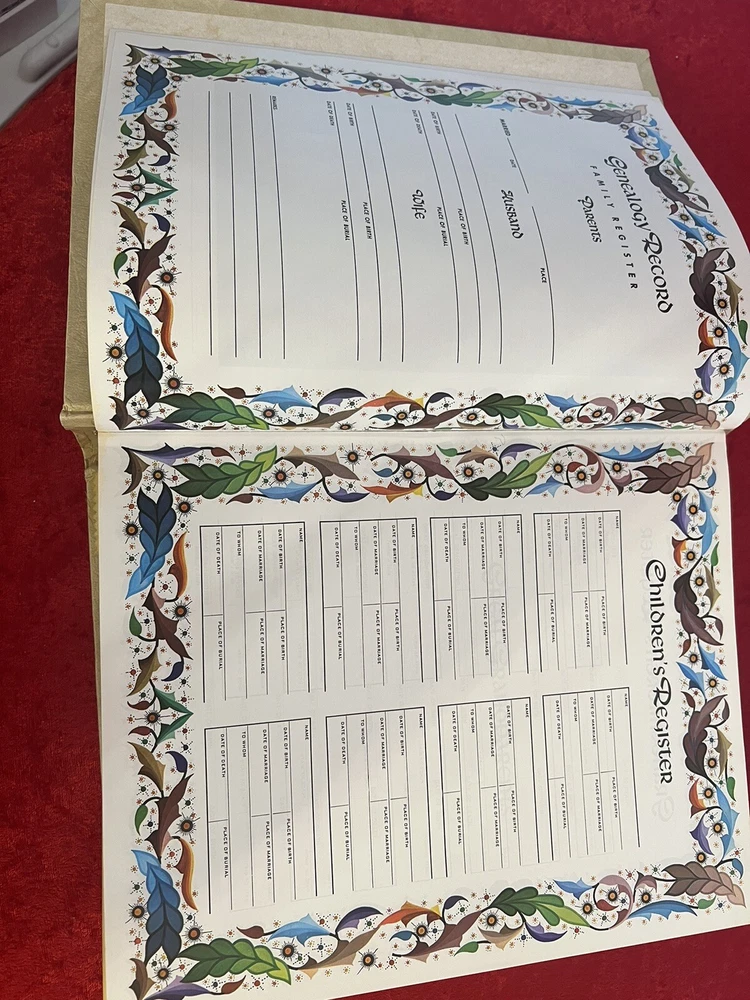 Genealogy Record
FAMILY REGISTER
Parents
MARRIED DATE PLACE
Husband
DATE OF BIRTH PLACE OF BIRTH
DATE OF DEATH PLACE OF BURIAL
Wife
DATE OF BIRTH PLACE OF BIRTH
DATE OF DEATH PLACE OF BURIAL
REMARKS
Children's Register
NAME
DATE OF BIRTH PLACE OF BIRTH
DATE OF MARRIAGE PLACE OF MARRIAGE
TO WHOM
DATE OF DEATH PLACE OF BURIAL
NAME
DATE OF BIRTH PLACE OF BIRTH
DATE OF MARRIAGE PLACE OF MARRIAGE
TO WHOM
DATE OF DEATH PLACE OF BURIAL
NAME
DATE OF BIRTH PLACE OF BIRTH
DATE OF MARRIAGE PLACE OF MARRIAGE
TO WHOM
DATE OF DEATH PLACE OF BURIAL
NAME
DATE OF BIRTH PLACE OF BIRTH
TO WHOM
DATE OF MARRIAGE PLACE OF MARRIAGE
DATE OF DEATH PLACE OF BURIAL
NAME
DATE OF BIRTH PLACE OF BIRTH
DATE OF MARRIAGE PLACE OF MARRIAGE
TO WHOM
DATE OF DEATH PLACE OF BURIAL
NAME
DATE OF BIRTH PLACE OF BIRTH
DATE OF MARRIAGE PLACE OF MARRIAGE
TO WHOM
DATE OF DEATH PLACE OF BURIAL
NAME
DATE OF BIRTH PLACE OF BIRTH
DATE OF MARRIAGE PLACE OF MARRIAGE
TO WHOM
DATE OF DEATH PLACE OF BURIAL
NAME
DATE OF BIRTH PLACE OF BIRTH
DATE OF MARRIAGE PLACE OF MARRIAGE
TO WHOM
DATE OF DEATH PLACE OF BURIAL